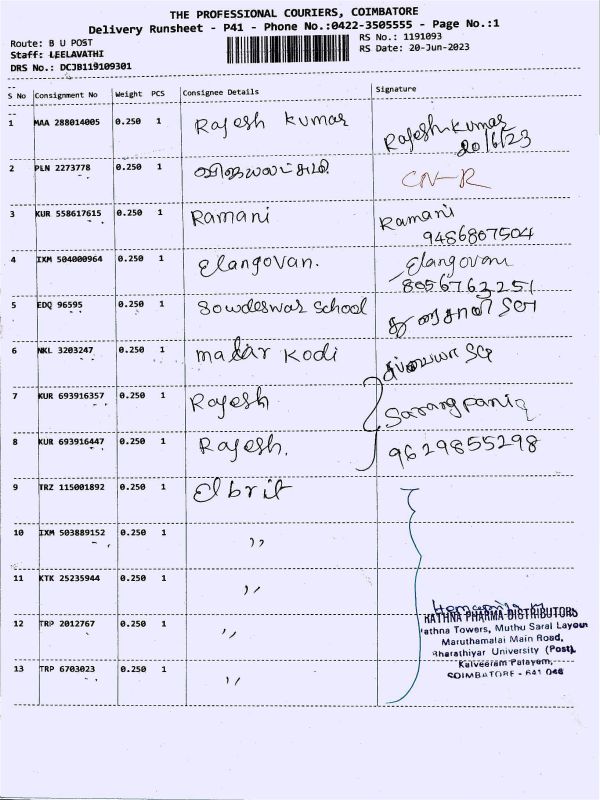 THE PROFESSIONAL COURIERS, COIMBATORE
Delivery Runsheet - P41 - Phone No.:0422-3505555 - Page No.:1
Route: B U POST
Staff: LEELAVATHI
DRS No.: DCJB119109301
RS No.: 1191093
RS Date: 20-Jun-2023
S No Consignment No Weight PCS Consignee Details Signature
1 MAA 288014005 0.250 1 Rajesh Kumar Rajesh Kumar
20/6/23
2 PLN 2273778 0.250 1 விஜயலட்சுமி CN-R
3 KUR 558617615 0.250 1 Ramani Ramani
9486807504
4 IXM 504000964 0.250 1 Elangovan. Elangovan
8056763251
5 EDQ 96595 0.250 1 Sowdeswar School
6 NKL 3203247 0.250 1 malar Kodi
7 KUR 693916357 0.250 1 Rajesh Sarangpani
8 KUR 693916447 0.250 1 Rajesh. 9629855298
9 TRZ 115001892 0.250 1 Elbrit
10 IXM 503889152 0.250 1 ,,
11 KTK 25235944 0.250 1 ,,
12 TRP 2012767 0.250 1 ,,
13 TRP 6703023 0.250 1 ,,
RATHNA PHARMA DISTRIBUTORS
Rathna Towers, Muthu Saral Layout
Maruthamalai Main Road,
Bharathiyar University (Post),
Kalveeram Palayam,
COIMBATORE - 641 046